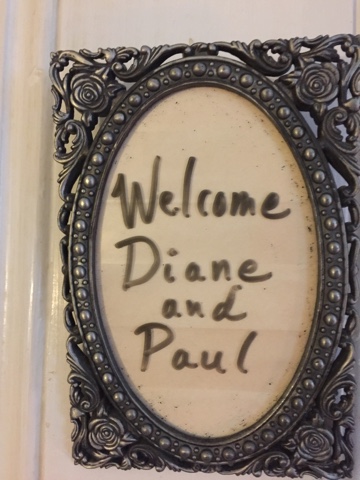 Welcome
Diane
and
Paul